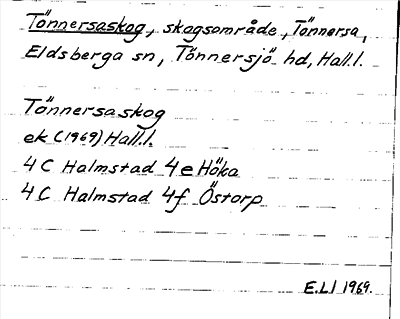 Tönnersaskog, skogsområde, Tönnersa,
Eldsberga sn, Tönnersjö hd, Hall.l.
Tönnersaskog
ek (1969) Hall.l.
4 C Halmstad 4 e Höka
4 C Halmstad 4f Östorp
E.Ll 1969.